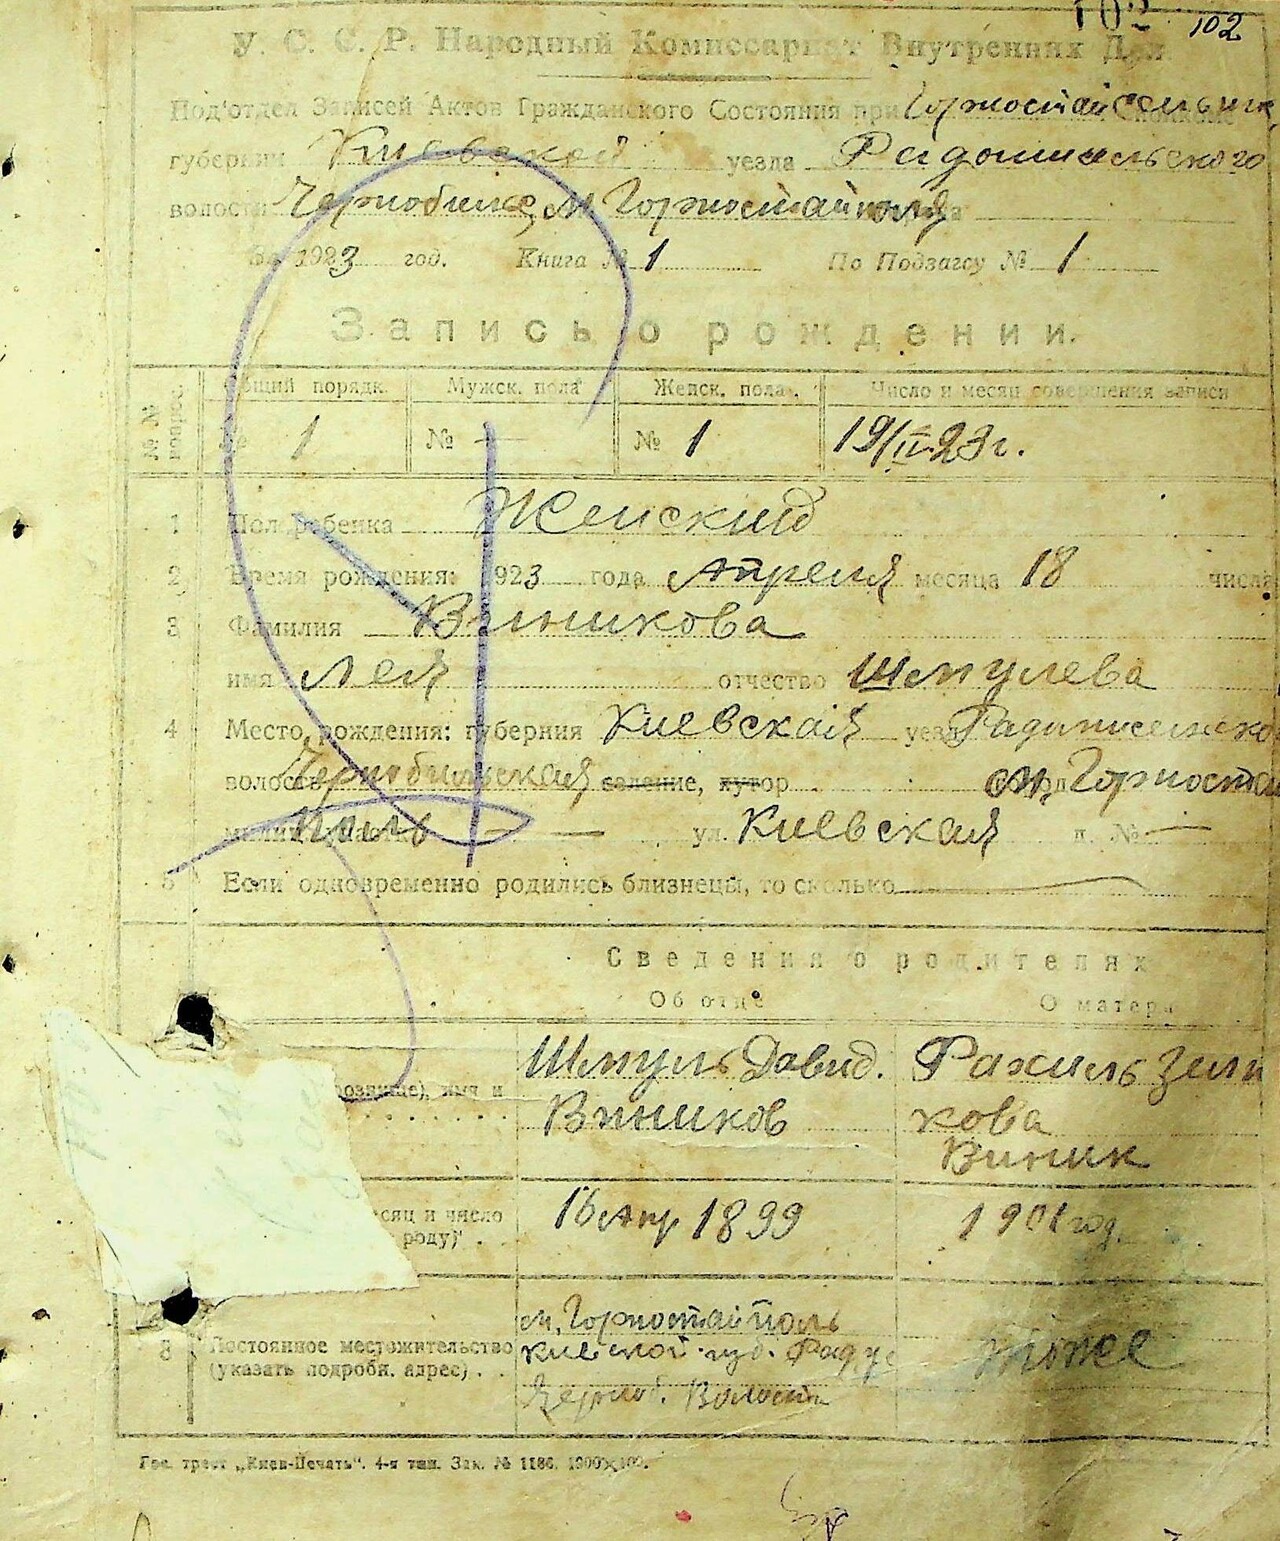 102 102
У. С. С. Р. Народный Комиссариат Внутренних Дел
Под'отдел Записей Актов Гражданского Состояния при Горностай
губернии Киевской уезда Радомисльского
волости Чернобил м Горностайполя
За 1923 год. Книга № 1 По Подзагсу № 1
Запись о рождении.
№ № вопрос. Общий порядк. Мужск. пола Женск. пола. Число и месяц совершения записи
№ 1 № — № 1 19/IV 23 г.
1 Пол ребенка Женский
2 Время рождения: 1923 года Апреля месяца 18 числа
3 Фамилия Винникова
имя Лея отчество Шмулева
4 Место рождения: губерния Киевская уезд Радомисельско
волость Чернобильская селение, хутор м, Горностай
поль — — ул. Киевская д. № —
5 Если одновременно родились близнецы, то сколько —
Сведения о родителях
Об отце О матери
Шмуль Давид. Рахиль Зели
(прозвище), имя и
Виников кова
Виник
месяц и число 16 Апр 1899 1901 год.
роду) . .
м, Горностайполь
8 Постоянное местожительство Киевской губ. Рад уе тоже
(указать подробн. адрес) . . Черноб. Волости
Гос. трест „Киев-Печать". 4-я тип. Зак. № 1186. 1000×100.